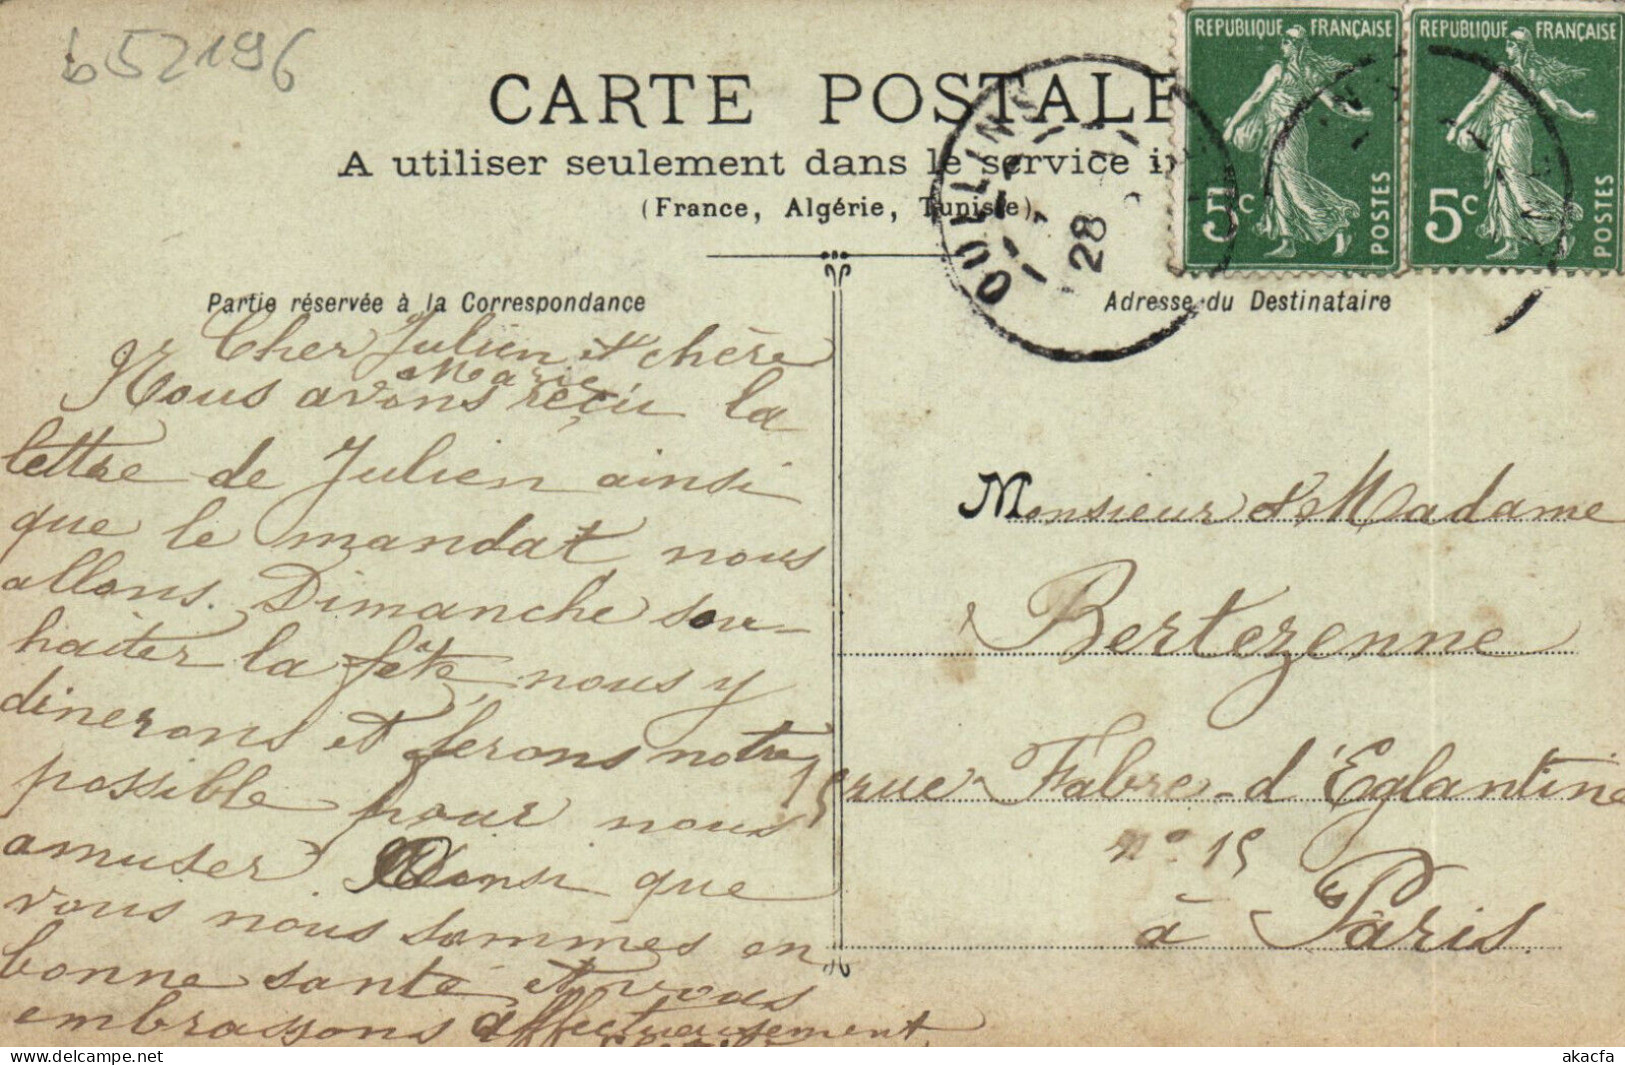 b52196
CARTE POSTALE
A utiliser seulement dans le service
(France, Algérie, Tunisie)
REPUBLIQUE FRANÇAISE
5c
POSTES
REPUBLIQUE FRANÇAISE
5c
POSTES
OULLIN
28
Partie réservée à la Correspondance
Cher Julien et chère
Marie
Nous avons reçu la
lettre de Julien ainsi
que le mandat nous
allons. Dimanche sou-
haiter la fête, nous y
dinerons et ferons notre
possible pour nous
amuser. Ainsi que
vous nous sommes en
bonne santé et vous
embrassons affectueusement
Adresse du Destinataire
Monsieur & Madame
Bertezenne
15 rue Fabre-d'Eglantine
n° 15
à Paris.
akacfa